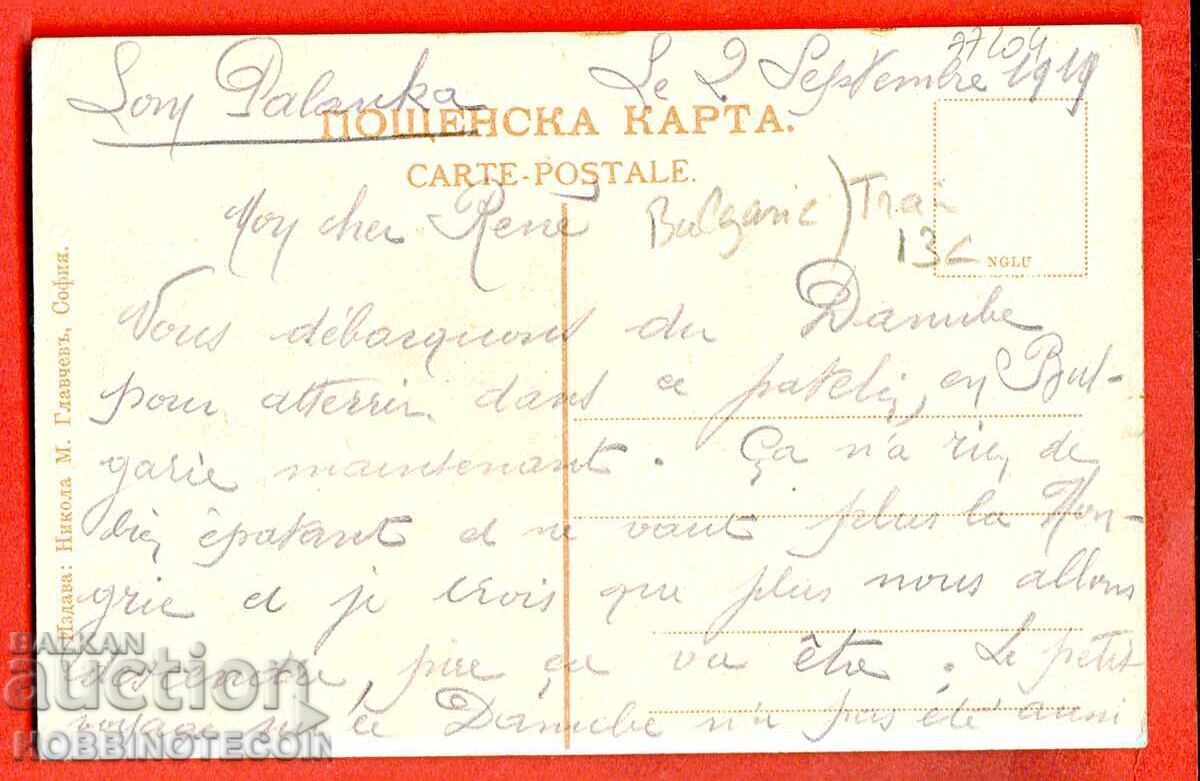 77204
Lom Palanka Le 2 Septembre 1919
ПОЩЕНСКА КАРТА.
CARTE-POSTALE.
Mon cher René
Bulgarie) Train
13C
NGLU
Nous débarquons du Danube
pour atterrir dans ce patelin, en Bul-
garie maintenant. Ça n'a rien de
bien épatant et ne vaut plus la Hon-
grie et je crois que plus nous allons
descendre, pire ça va être. Le petit
voyage sur le Danube n'a pas été aussi
Издава: Никола М. Главчевъ, София.
BALKAN
auction
HOBBINOTECOIN